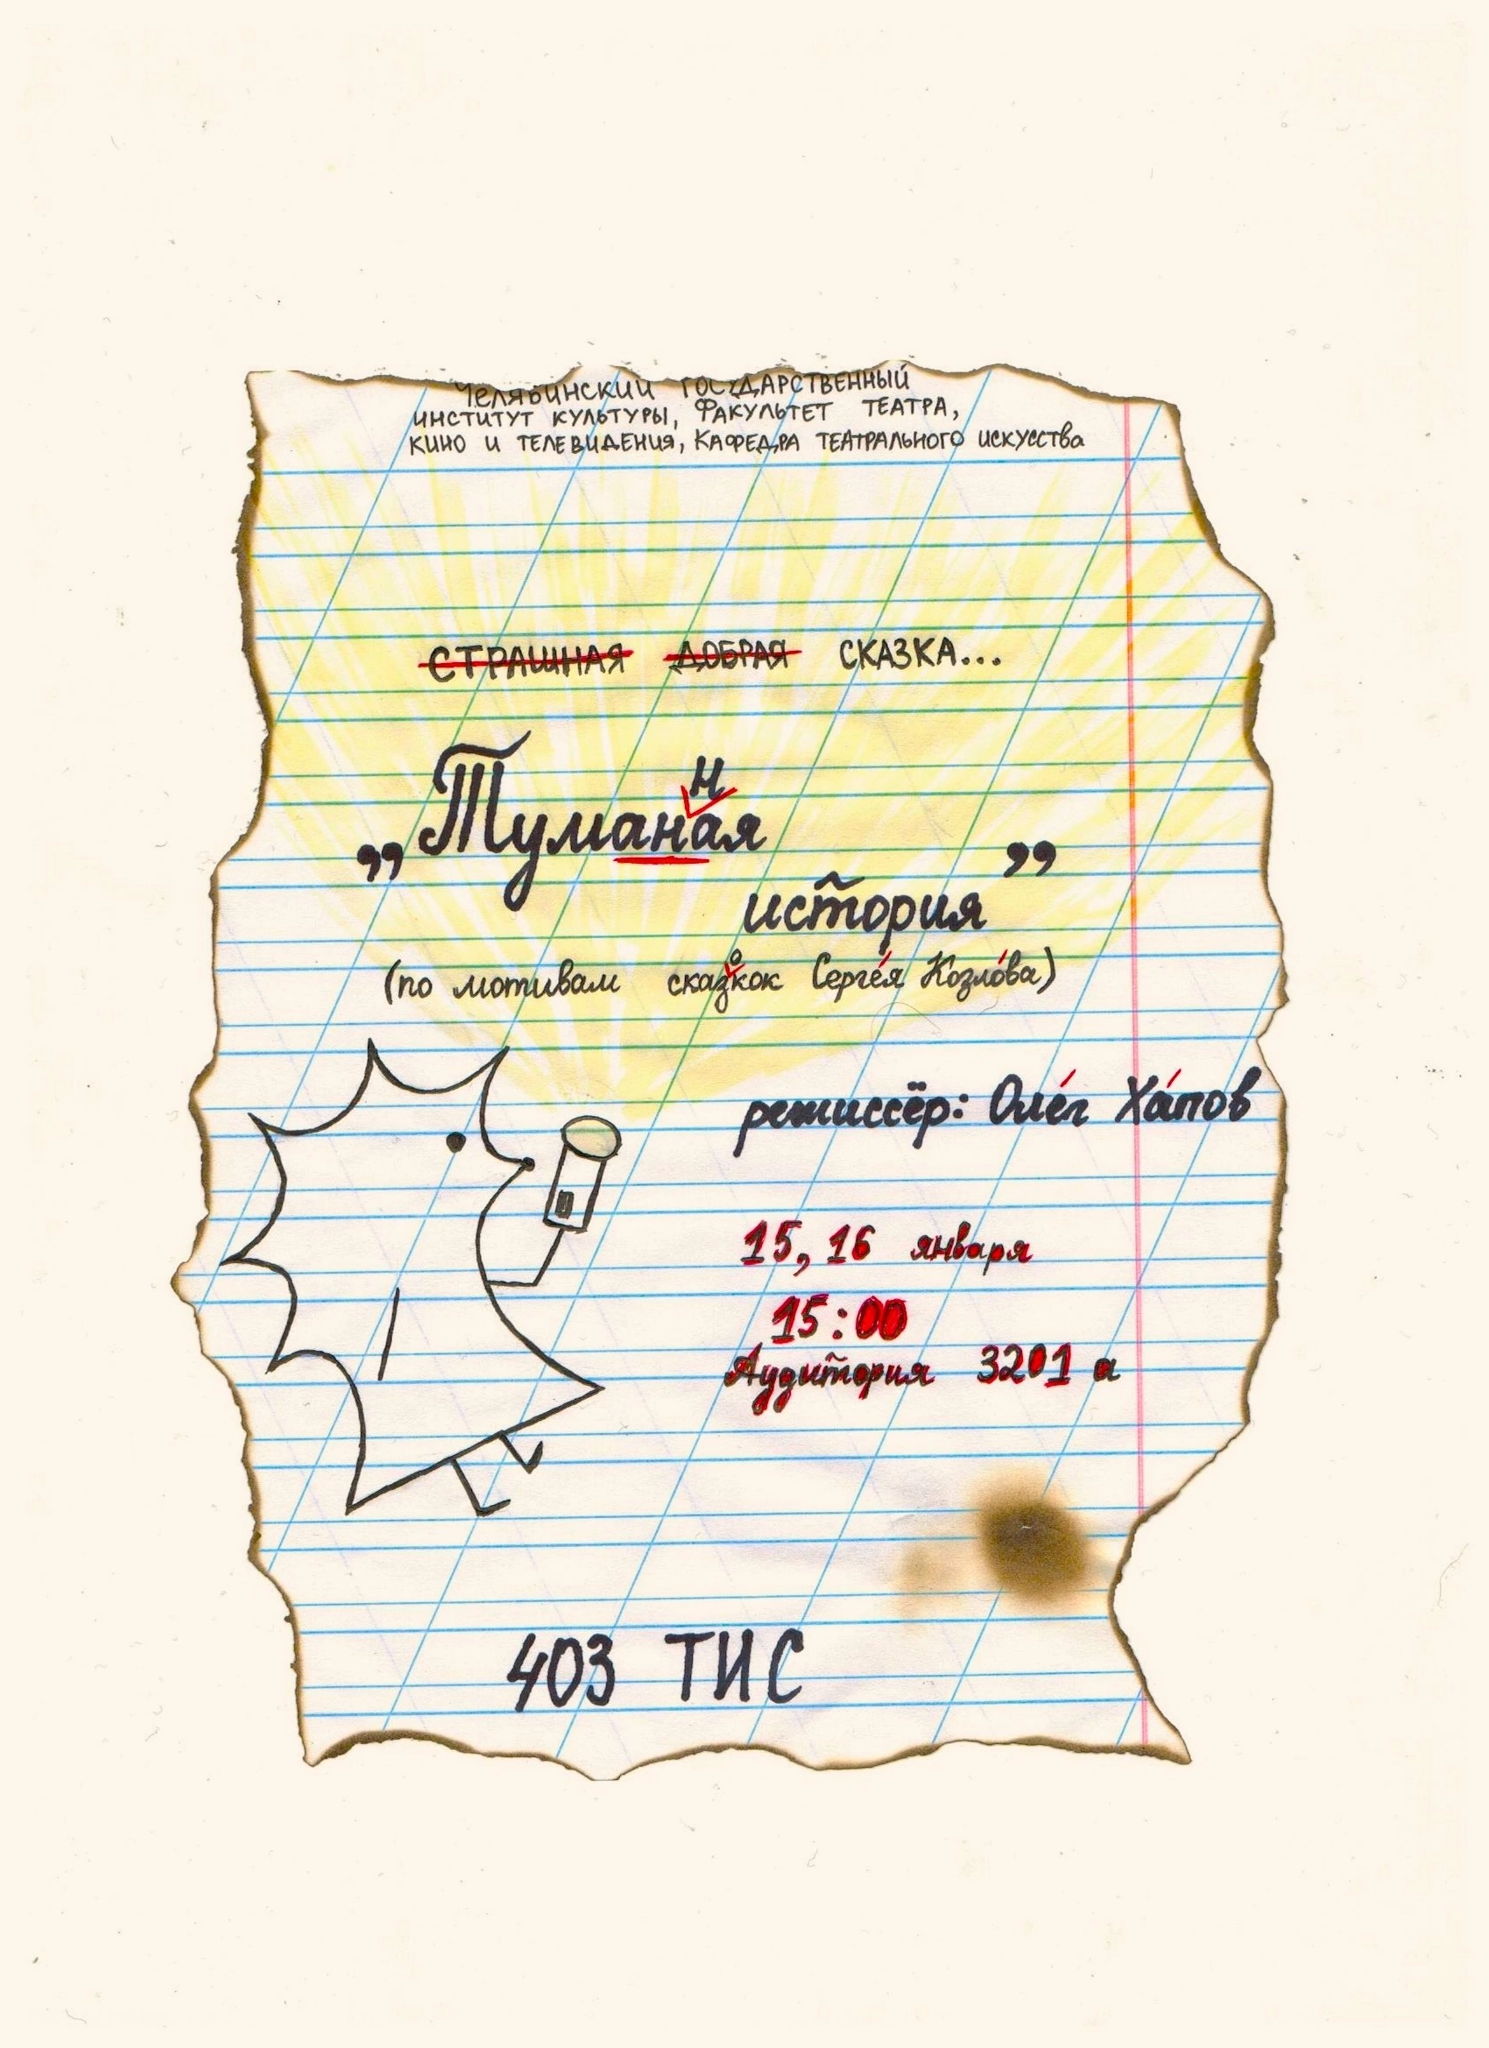 Челябинский государственный
институт культуры, факультет театра,
кино и телевидения, кафедра театрального искусства
СТРАШНАЯ ДОБРАЯ СКАЗКА...
н
„Туманая
история”
(по мотивам сказ°кок Серге́я Козло́ва)
режиссёр: Оле́г Ха́пов
15, 16 января
15:00
Аудитория 3201 а
403 ТИС